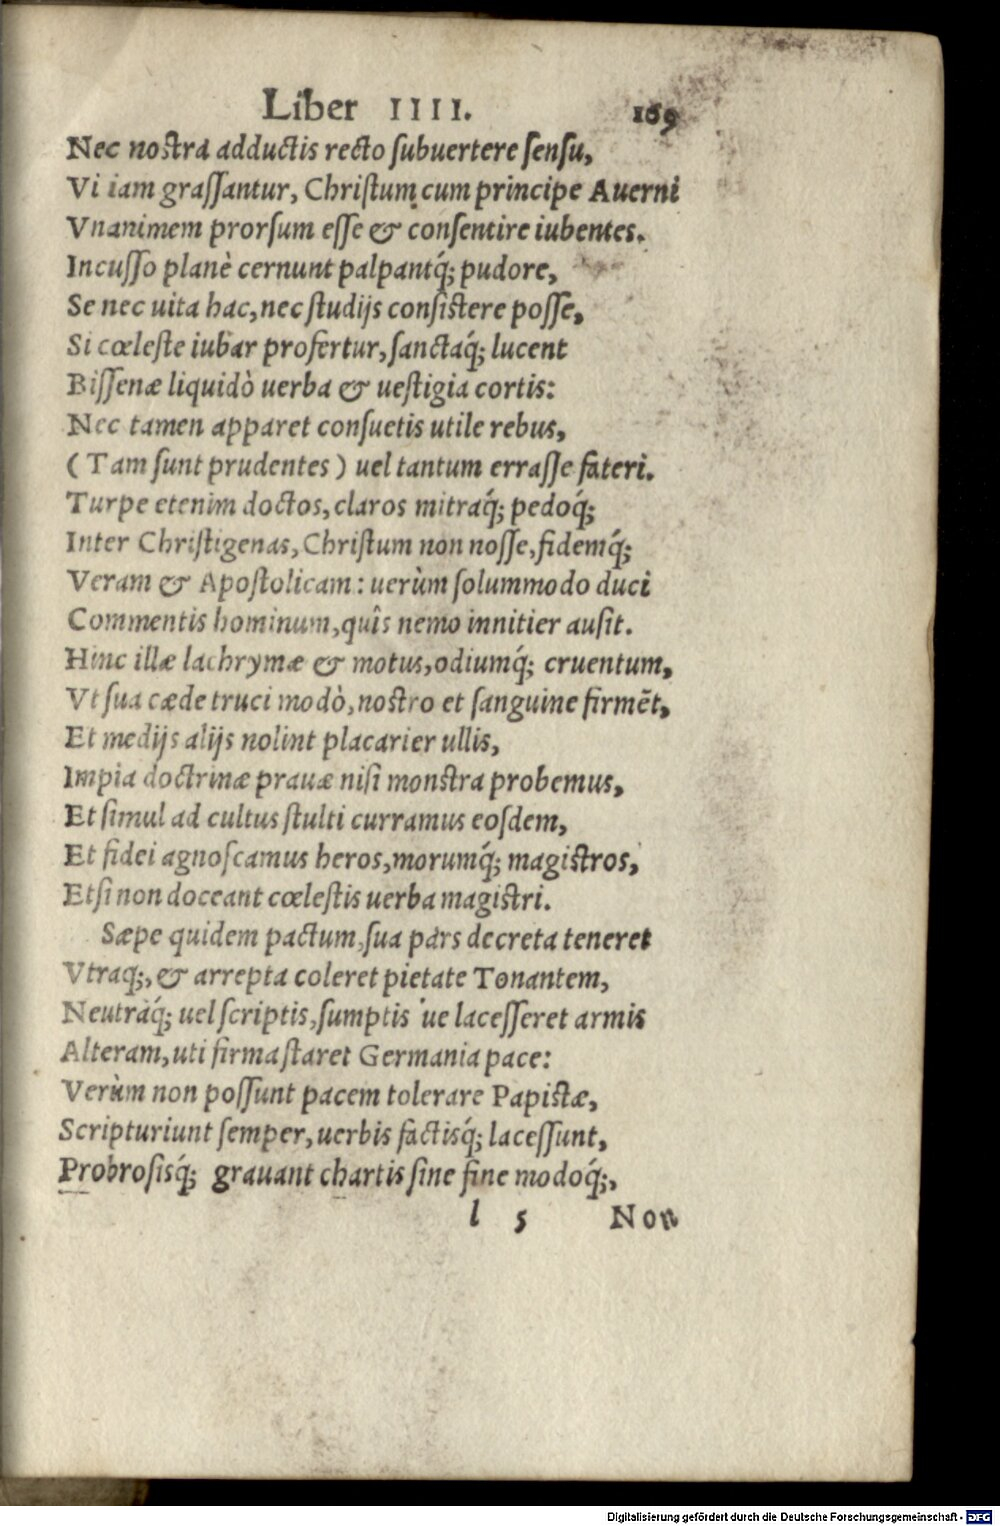 Liber IIII. 169
Nec nostra adductis recto ſubuertere ſenſu,
Vi iam graſſantur, Chriſtum cum principe Auerni
Vnanimem prorſum eſſe & conſentire iubentes.
Incuſſo planè cernunt palpantq́; pudore,
Se nec uita hac, nec ſtudijs conſistere poſſe,
Si cœleſte iubar profertur, ſanctaq́; lucent
Biſſenæ liquidò uerba & ueſtigia cortis:
Nec tamen apparet conſuetis utile rebus,
(Tam ſunt prudentes) uel tantum erraſſe fateri.
Turpe etenim doctos, claros mitraq́; pedoq́;
Inter Chriſtigenas, Chriſtum non noſſe, fidemq́;
Veram & Apoſtolicam: uerùm ſolummodo duci
Commentis hominum, quîs nemo innitier auſit.
Hinc illæ lachrymæ & motus, odiumq́; cruentum,
Vt ſua cæde truci modò, nostro et ſanguine firmẽt,
Et medijs alijs nolint placarier ullis,
Impia doctrinæ prauæ niſi monstra probemus,
Et ſimul ad cultus ſtulti curramus eoſdem,
Et fidei agnoſcamus heros, morumq́; magistros,
Etſi non doceant cœleſtis uerba magiſtri.
Sæpe quidem pactum, ſua pars decreta teneret
Vtraq;, & arrepta coleret pietate Tonantem,
Neutráq́; uel ſcriptis, ſumptis ue laceſſeret armis
Alteram, uti firma ſtaret Germania pace:
Verùm non poſſunt pacem tolerare Papistæ,
Scripturiunt ſemper, uerbis factisq́; laceſſunt,
Probroſisq́; grauant chartis ſine fine modoq́;,
l 5 Non
Digitalisierung gefördert durch die Deutsche Forschungsgemeinschaft - DFG